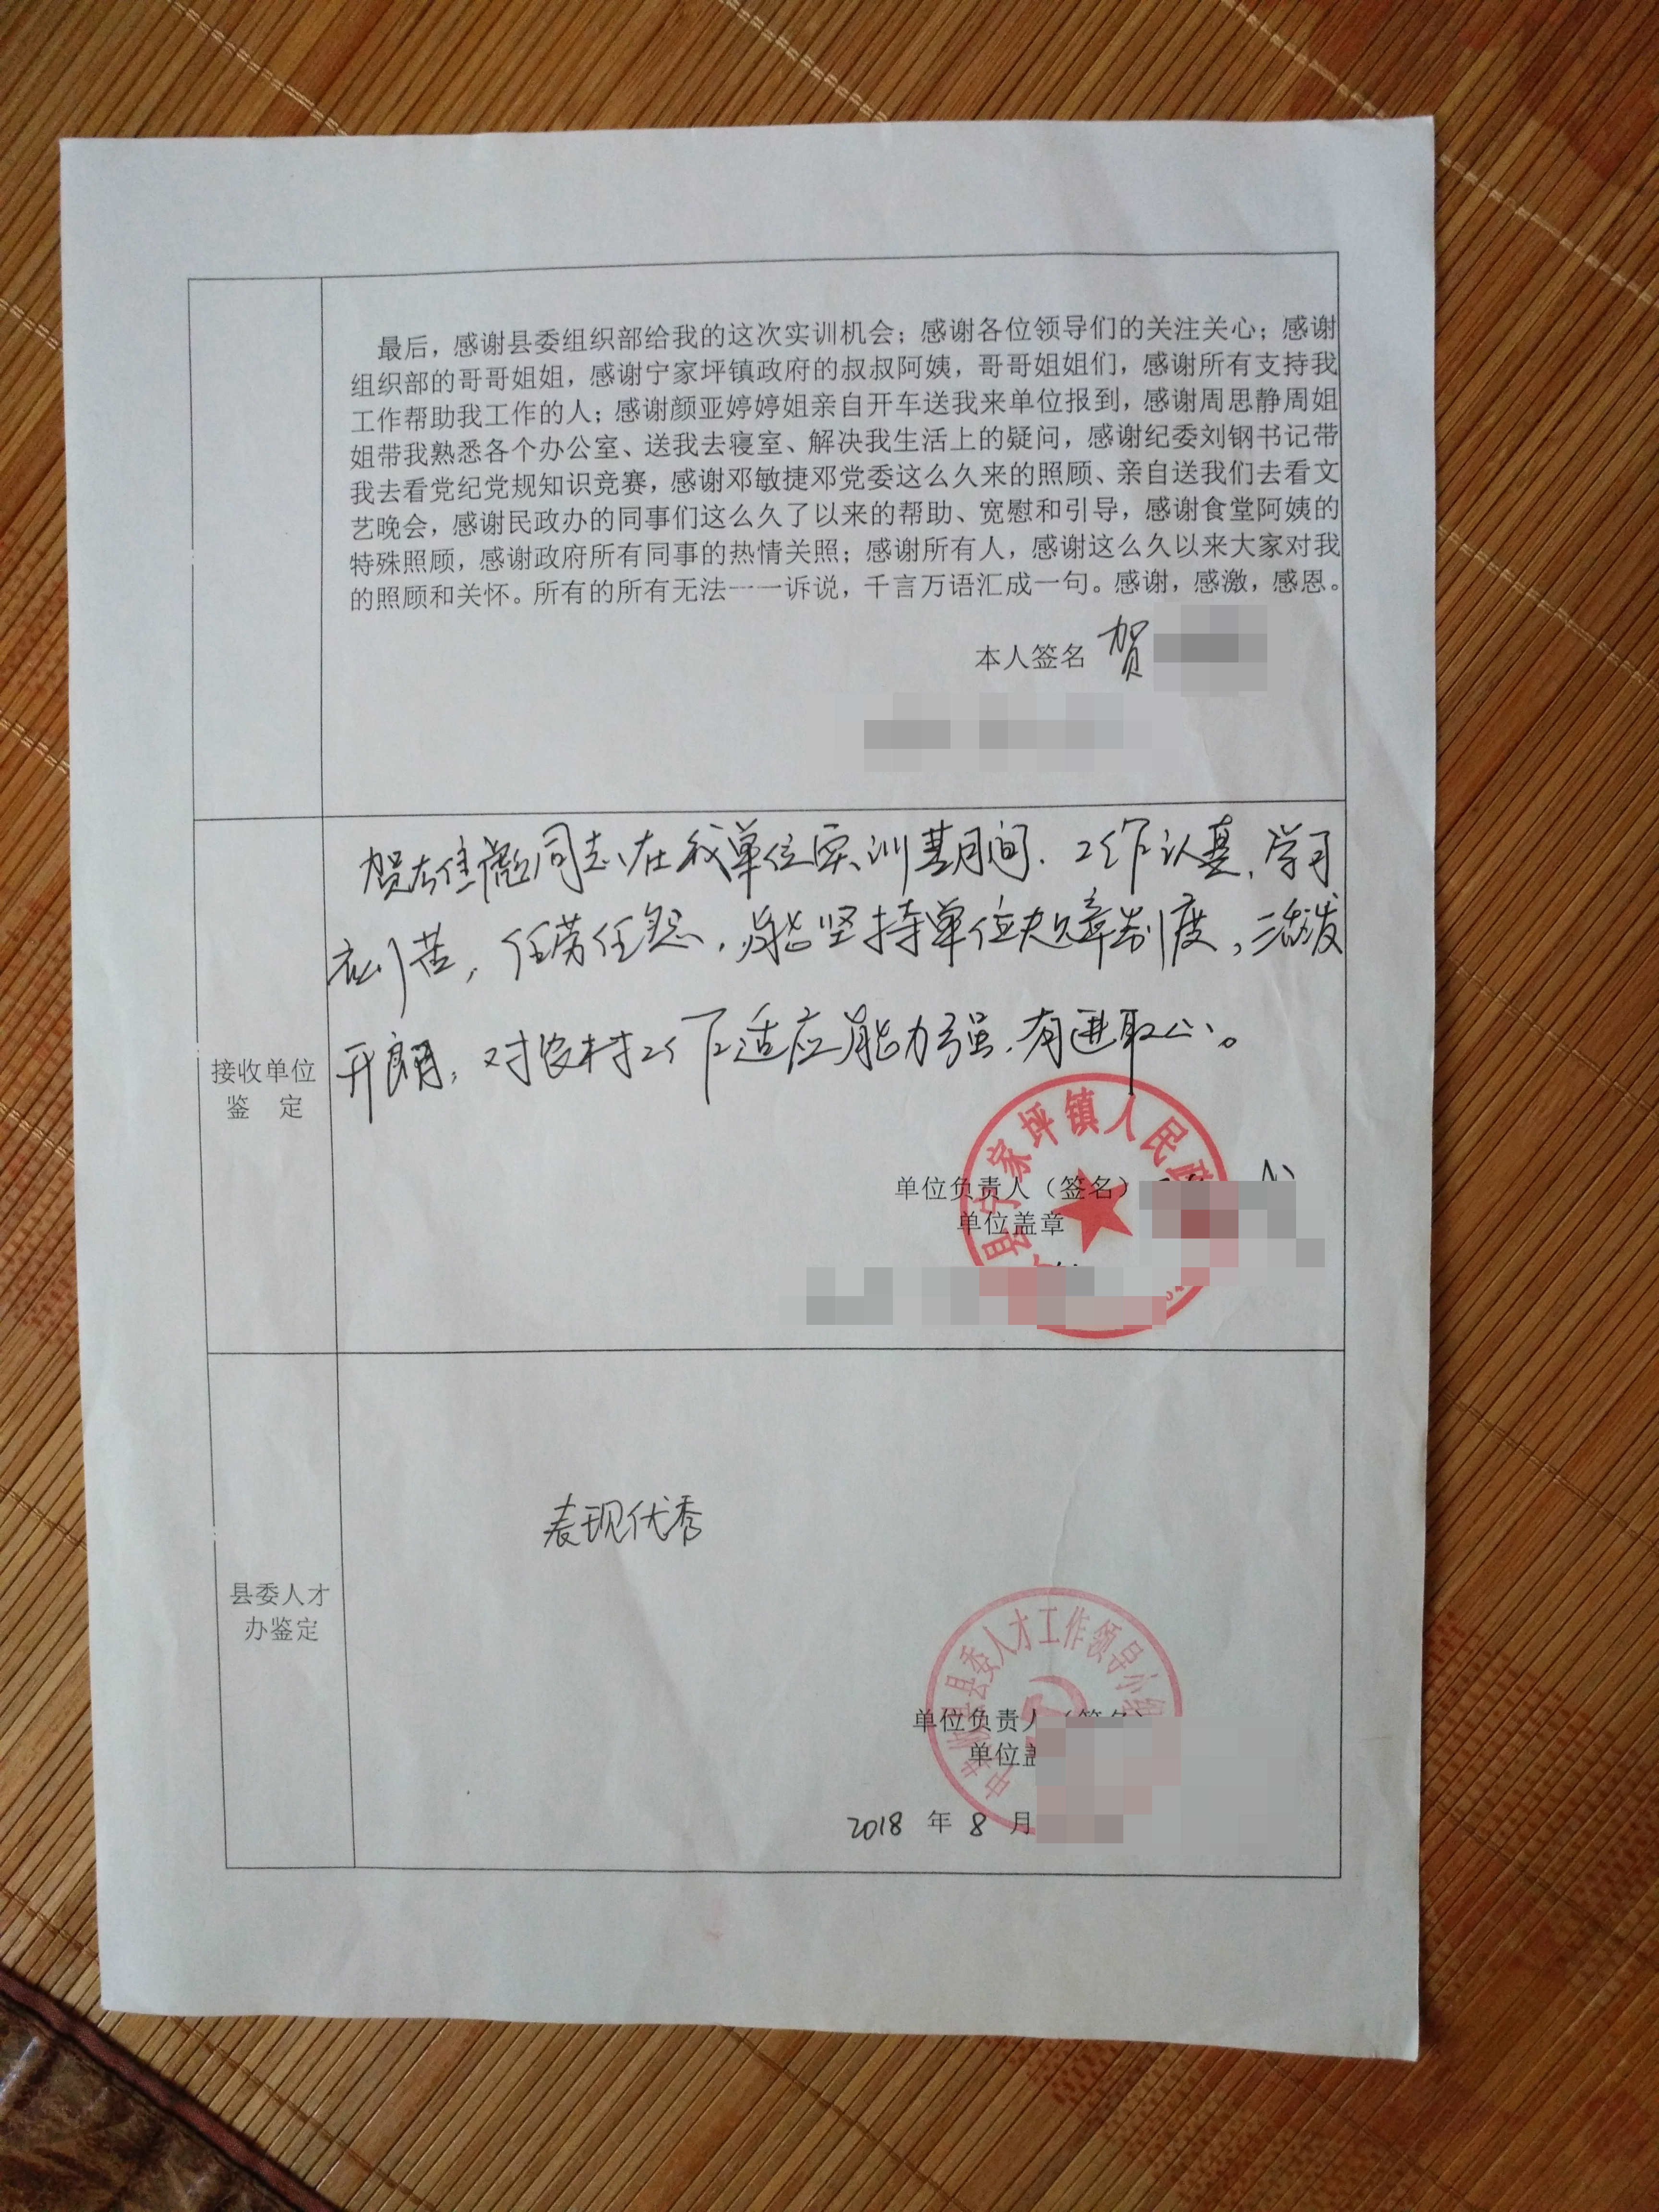 最后，感谢县委组织部给我的这次实训机会；感谢各位领导们的关注关心；感谢
组织部的哥哥姐姐，感谢宁家坪镇政府的叔叔阿姨，哥哥姐姐们，感谢所有支持我
工作帮助我工作的人；感谢颜亚婷婷姐亲自开车送我来单位报到，感谢周思静周姐
姐带我熟悉各个办公室、送我去寝室、解决我生活上的疑问，感谢纪委刘钢书记带
我去看党纪党规知识竞赛，感谢邓敏捷邓党委这么久来的照顾、亲自送我们去看文
艺晚会，感谢民政办的同事们这么久了以来的帮助、宽慰和引导，感谢食堂阿姨的
特殊照顾，感谢政府所有同事的热情关照；感谢所有人，感谢这么久以来大家对我
的照顾和关怀。所有的所有无法一一诉说，千言万语汇成一句。感谢，感激，感恩。
本人签名 贺
接收单位
鉴 定
贺 佳 同志在我单位实训期间、工作认真、学习
刻苦，任劳任怨，能坚持单位规章制度，活泼
开朗，对农村工作适应能力强，有进取心。
县宁家坪镇人民政
单位负责人（签名）
单位盖章
县委人才
办鉴定
表现优秀
中共 县委人才工作领导小组
单位负责人（签名）
单位盖
2018 年 8 月